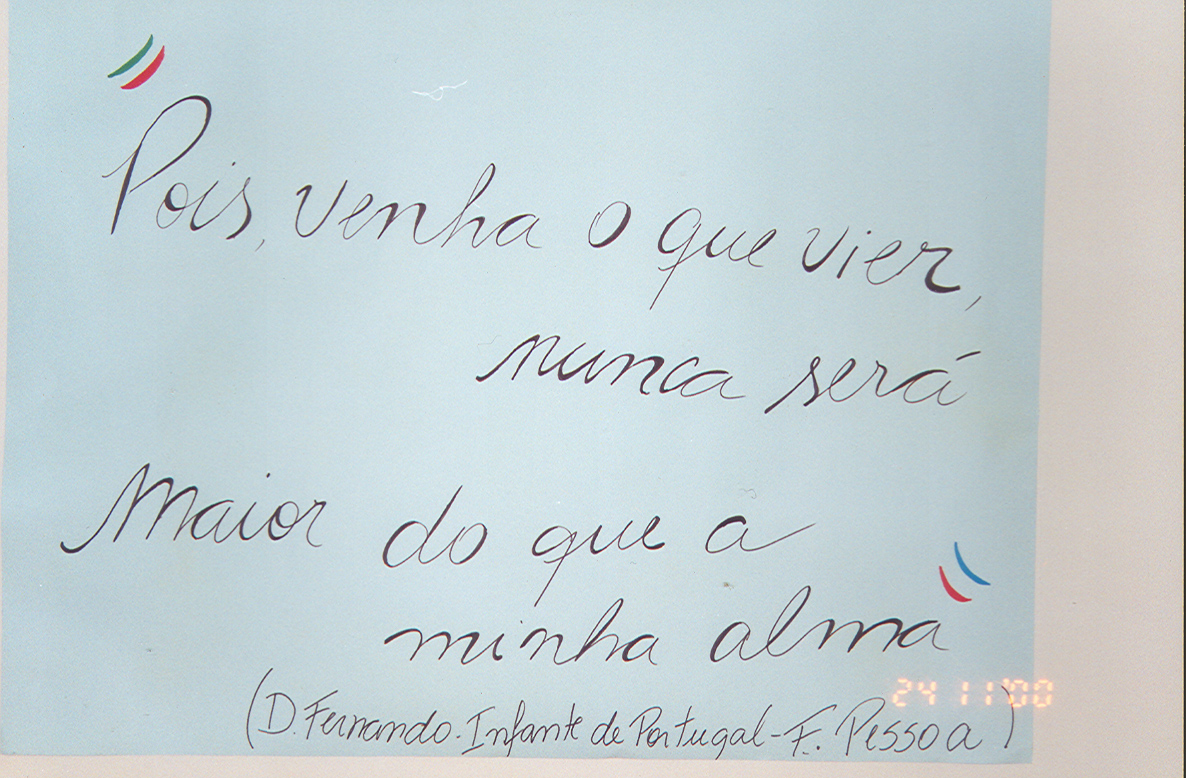 "Pois, venha o que vier,
nunca será
Maior do que a
minha alma"
(D. Fernando. Infante de Portugal - F. Pessoa)
24 11 '00